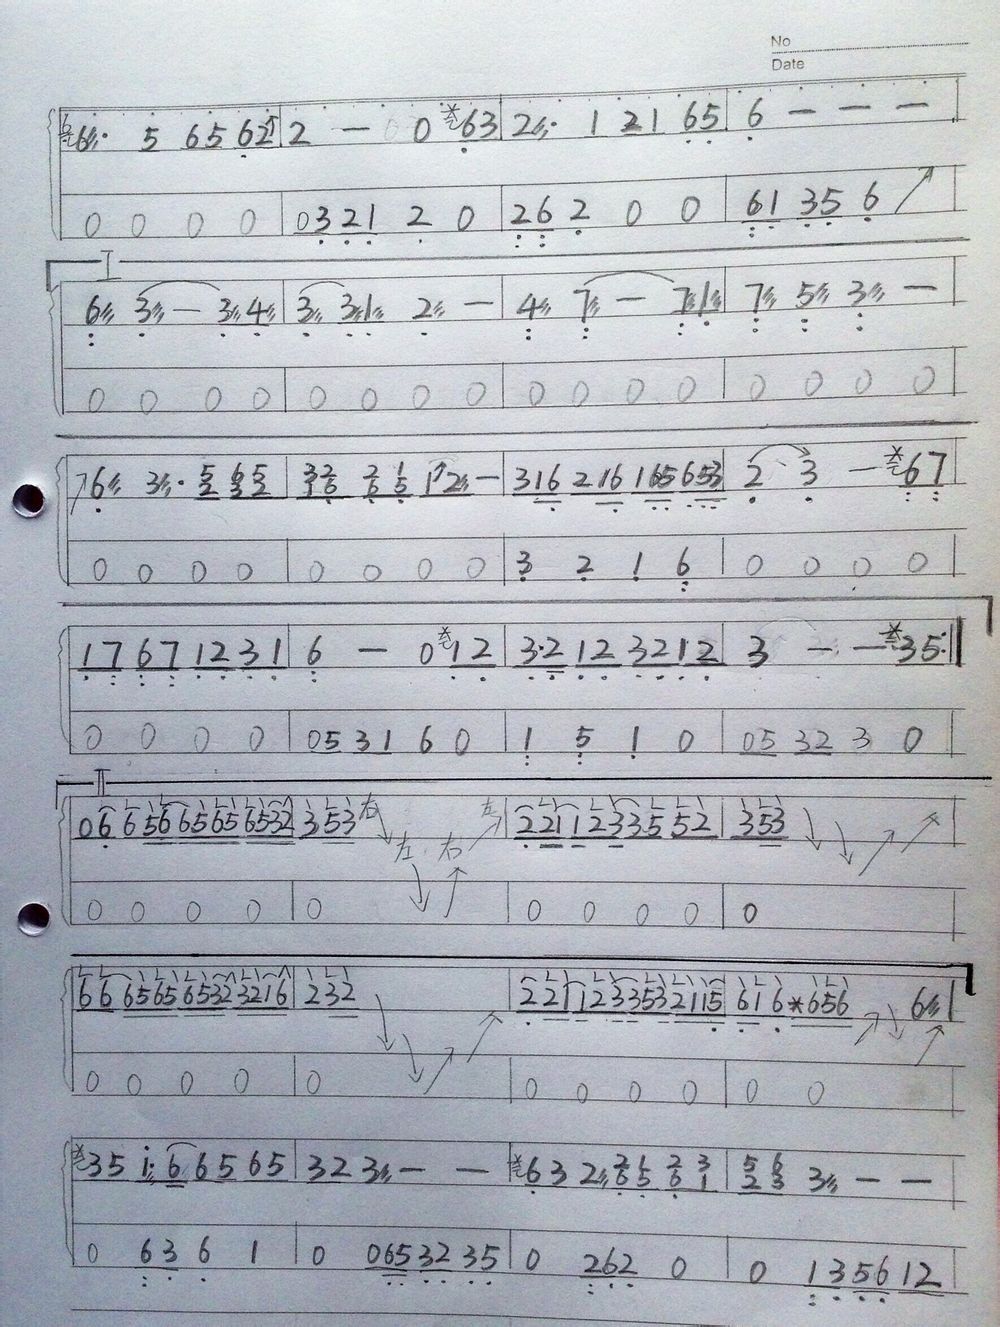 No
Date
6 · 5 65 62 | 2 — 0 63 | 2 · 1 21 65 | 6 — — —
0 0 0 0 | 0321 2 0 | 26 2 0 0 | 61 35 6
I
6 3 — 34 | 3 31 2 — | 4 7 — 71 | 7 5 3 —
0 0 0 0 | 0 0 0 0 | 0 0 0 0 | 0 0 0 0
316 216 165 653 | 2 3 — 67
0 0 0 0 | 0 0 0 0 | 3 2 1 6 | 0 0 0 0
17 67 12 31 | 6 — 0 12 | 3·2 12 32 12 | 3 — — 35
0 0 0 0 | 05 31 6 0 | 1 5 1 0 | 05 32 3 0
II
06 656 6565 6532 | 353 右 左 右 左 | 221 123 335 52 | 353
0 0 0 0 | 0 | 0 0 0 0 | 0
66 6565 6532 3216 | 232 | 221 123 353 2115 | 616 *656 6 |
0 0 0 0 | 0 | 0 0 0 0 | 0 0
35 1· 6 65 65 | 323 3 — — | 63 2 | 3 — —
0 63 6 1 | 0 065 32 35 | 0 262 0 | 0 13 56 12